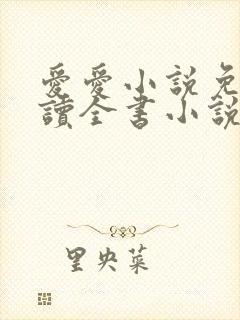 愛愛小說免
讀全書小說
里央菜